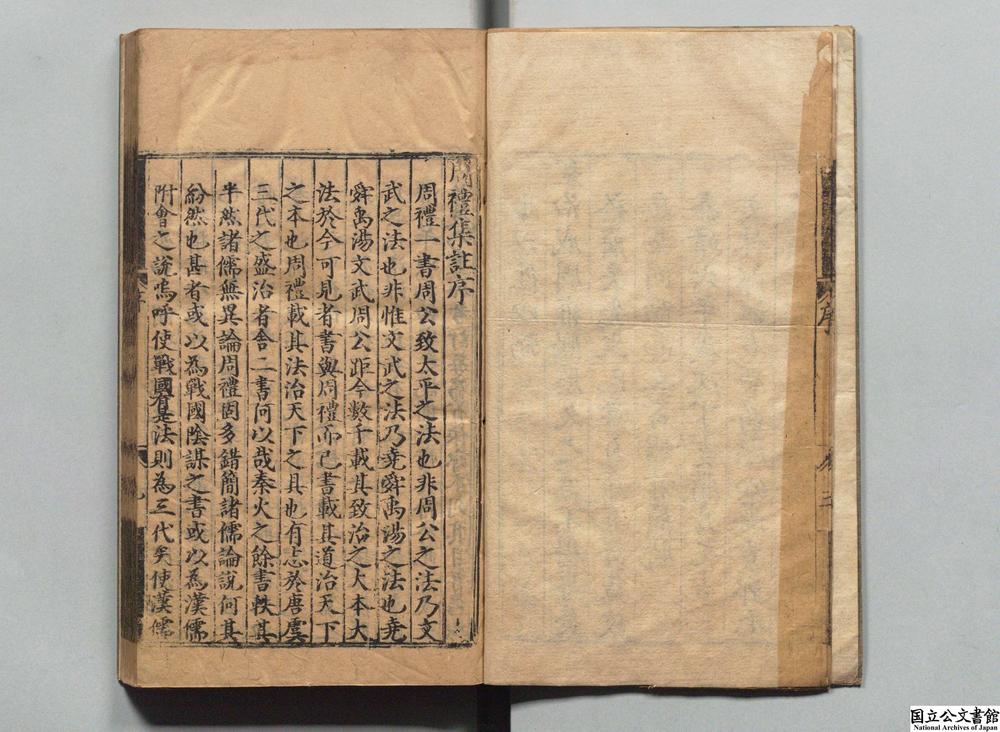 周禮集註序
周禮一書周公致太平之法也非周公之法乃文
武之法也非惟文武之法乃堯舜禹湯之法也堯
舜禹湯文武周公距今數千載其致治之大本大
法於今可見者書與周禮而已書載其道治天下
之本也周禮載其法治天下之具也有志於唐虞
三代之盛治者舍二書何以哉秦火之餘書軼其
半然諸儒無異論周禮固多錯簡諸儒論說何其
紛然也甚者或以為戰國陰謀之書或以為漢儒
附會之說嗚呼使戰國有是法則為三代矣使漢儒
序
国立公文書館
National Archives of Japan